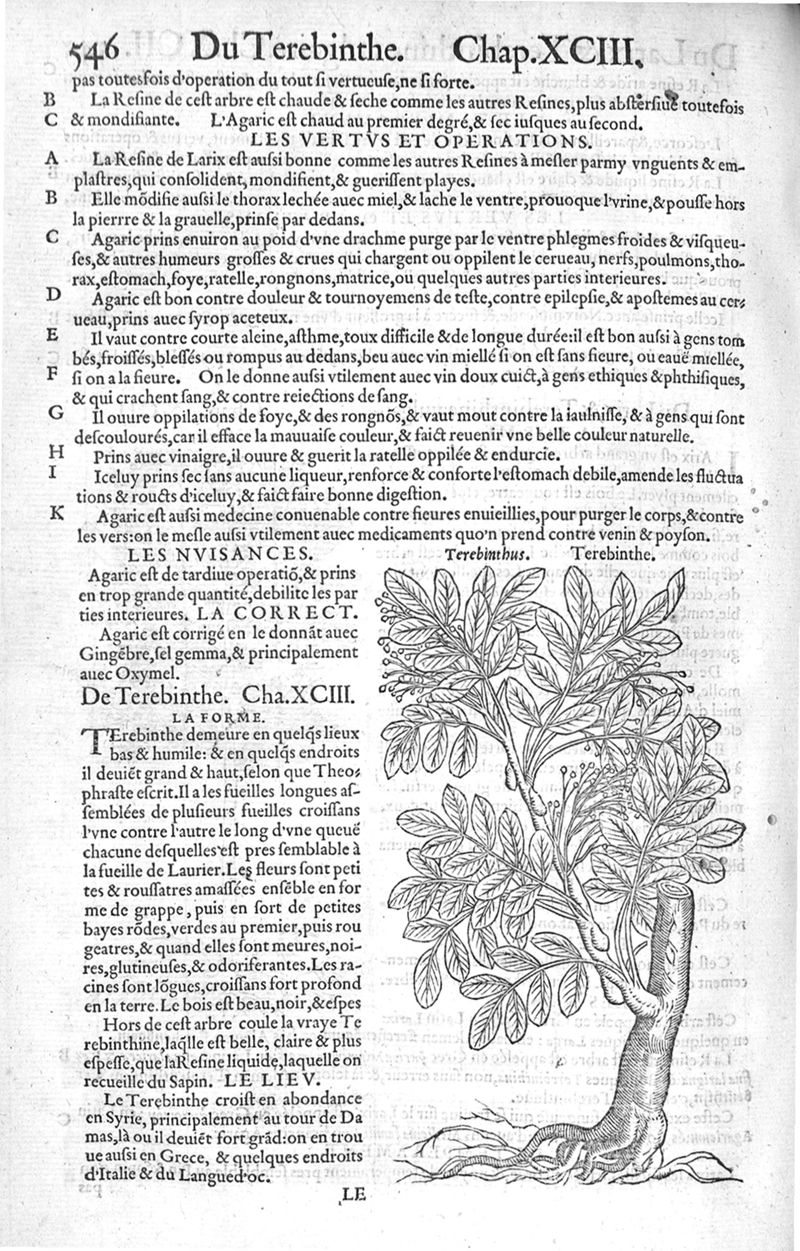 546 Du Terebinthe. Chap.XCIII.
pas toutesfois d'operation du tout si vertueuse,ne si forte.
B La Resine de cest arbre est chaude & seche comme les autres Resines,plus abstersiue toutefois
C & mondifiante. L'Agaric est chaud au premier degré,& sec iusques au second.
LES VERTVS ET OPERATIONS.
A La Resine de Larix est aussi bonne comme les autres Resines à mesler parmy vnguents & em-
plastres,qui consolident,mondifient,& guerissent playes.
B Elle mõdifie aussi le thorax lechée auec miel,& lache le ventre,prouoque l'vrine,& pousse hors
la pierrre & la grauelle,prinse par dedans.
C Agaric prins enuiron au poid d'vne drachme purge par le ventre phlegmes froides & visqueu-
ses,& autres humeurs grosses & crues qui chargent ou oppilent le cerueau, nerfs,poulmons,tho-
rax,estomach,foye,ratelle,rongnons,matrice,ou quelques autres parties interieures.
D Agaric est bon contre douleur & tournoyemens de teste,contre epilepsie,& apostemes au cer-
ueau,prins auec syrop aceteux.
E Il vaut contre courte aleine,asthme,toux difficile & de longue durée:il est bon aussi à gens tom
bés,froissés,blessés ou rompus au dedans,beu auec vin miellé si on est sans fieure, ou eauë miellée,
F si on a la fieure. On le donne aussi vtilement auec vin doux cuict,à gens ethiques & phthisiques,
& qui crachent sang,& contre reiections de sang.
G Il ouure oppilations de foye,& des rongnõs,& vaut mout contre la iaulnisse, & à gens qui sont
descoulourés,car il efface la mauuaise couleur,& faict reuenir vne belle couleur naturelle.
H Prins auec vinaigre,il ouure & guerit la ratelle oppilée & endurcie.
I Iceluy prins sec sans aucune liqueur,renforce & conforte l'estomach debile,amende les fluctua
tions & roucts d'iceluy,& faict faire bonne digestion.
K Agaric est aussi medecine conuenable contre fieures enuieillies,pour purger le corps,& contre
les vers:on le mesle aussi vtilement auec medicaments quo'n prend contre venin & poyson.
LES NVISANCES.
Agaric est de tardiue operatiõ,& prins
en trop grande quantité,debilite les par
ties interieures. LA CORRECT.
Agaric est corrigé en le donnãt auec
Gingẽbre,sel gemma,& principalement
auec Oxymel.
De Terebinthe. Cha.XCIII.
LA FORME.
TErebinthe demeure en quelq̃s lieux
bas & humile: & en quelq̃s endroits
il deuiẽt grand & haut,selon que Theo-
phraste escrit.Il a les fueilles longues as-
semblées de plusieurs fueilles croissans
l'vne contre l'autre le long d'vne queuë
chacune desquelles est pres semblable à
la fueille de Laurier.Les fleurs sont peti
tes & roussatres amassées ensẽble en for
me de grappe, puis en sort de petites
bayes rõdes,verdes au premier,puis rou
geatres,& quand elles sont meures,noi-
res,glutineuses,& odoriferantes.Les ra-
cines sont lõgues,croissans fort profond
en la terre.Le bois est beau,noir,& espes
Hors de cest arbre coule la vraye Te
rebinthine,laq̃lle est belle, claire & plus
espesse,que la Resine liquide,laquelle on
recueille du Sapin. LE LIEV.
Le Terebinthe croist en abondance
en Syrie, principalement au tour de Da
mas,là ou il deuiẽt fort grãd:on en trou
ue aussi en Grece, & quelques endroits
d'Italie & du Langued'oc.
Terebinthus. Terebinthe.
LE